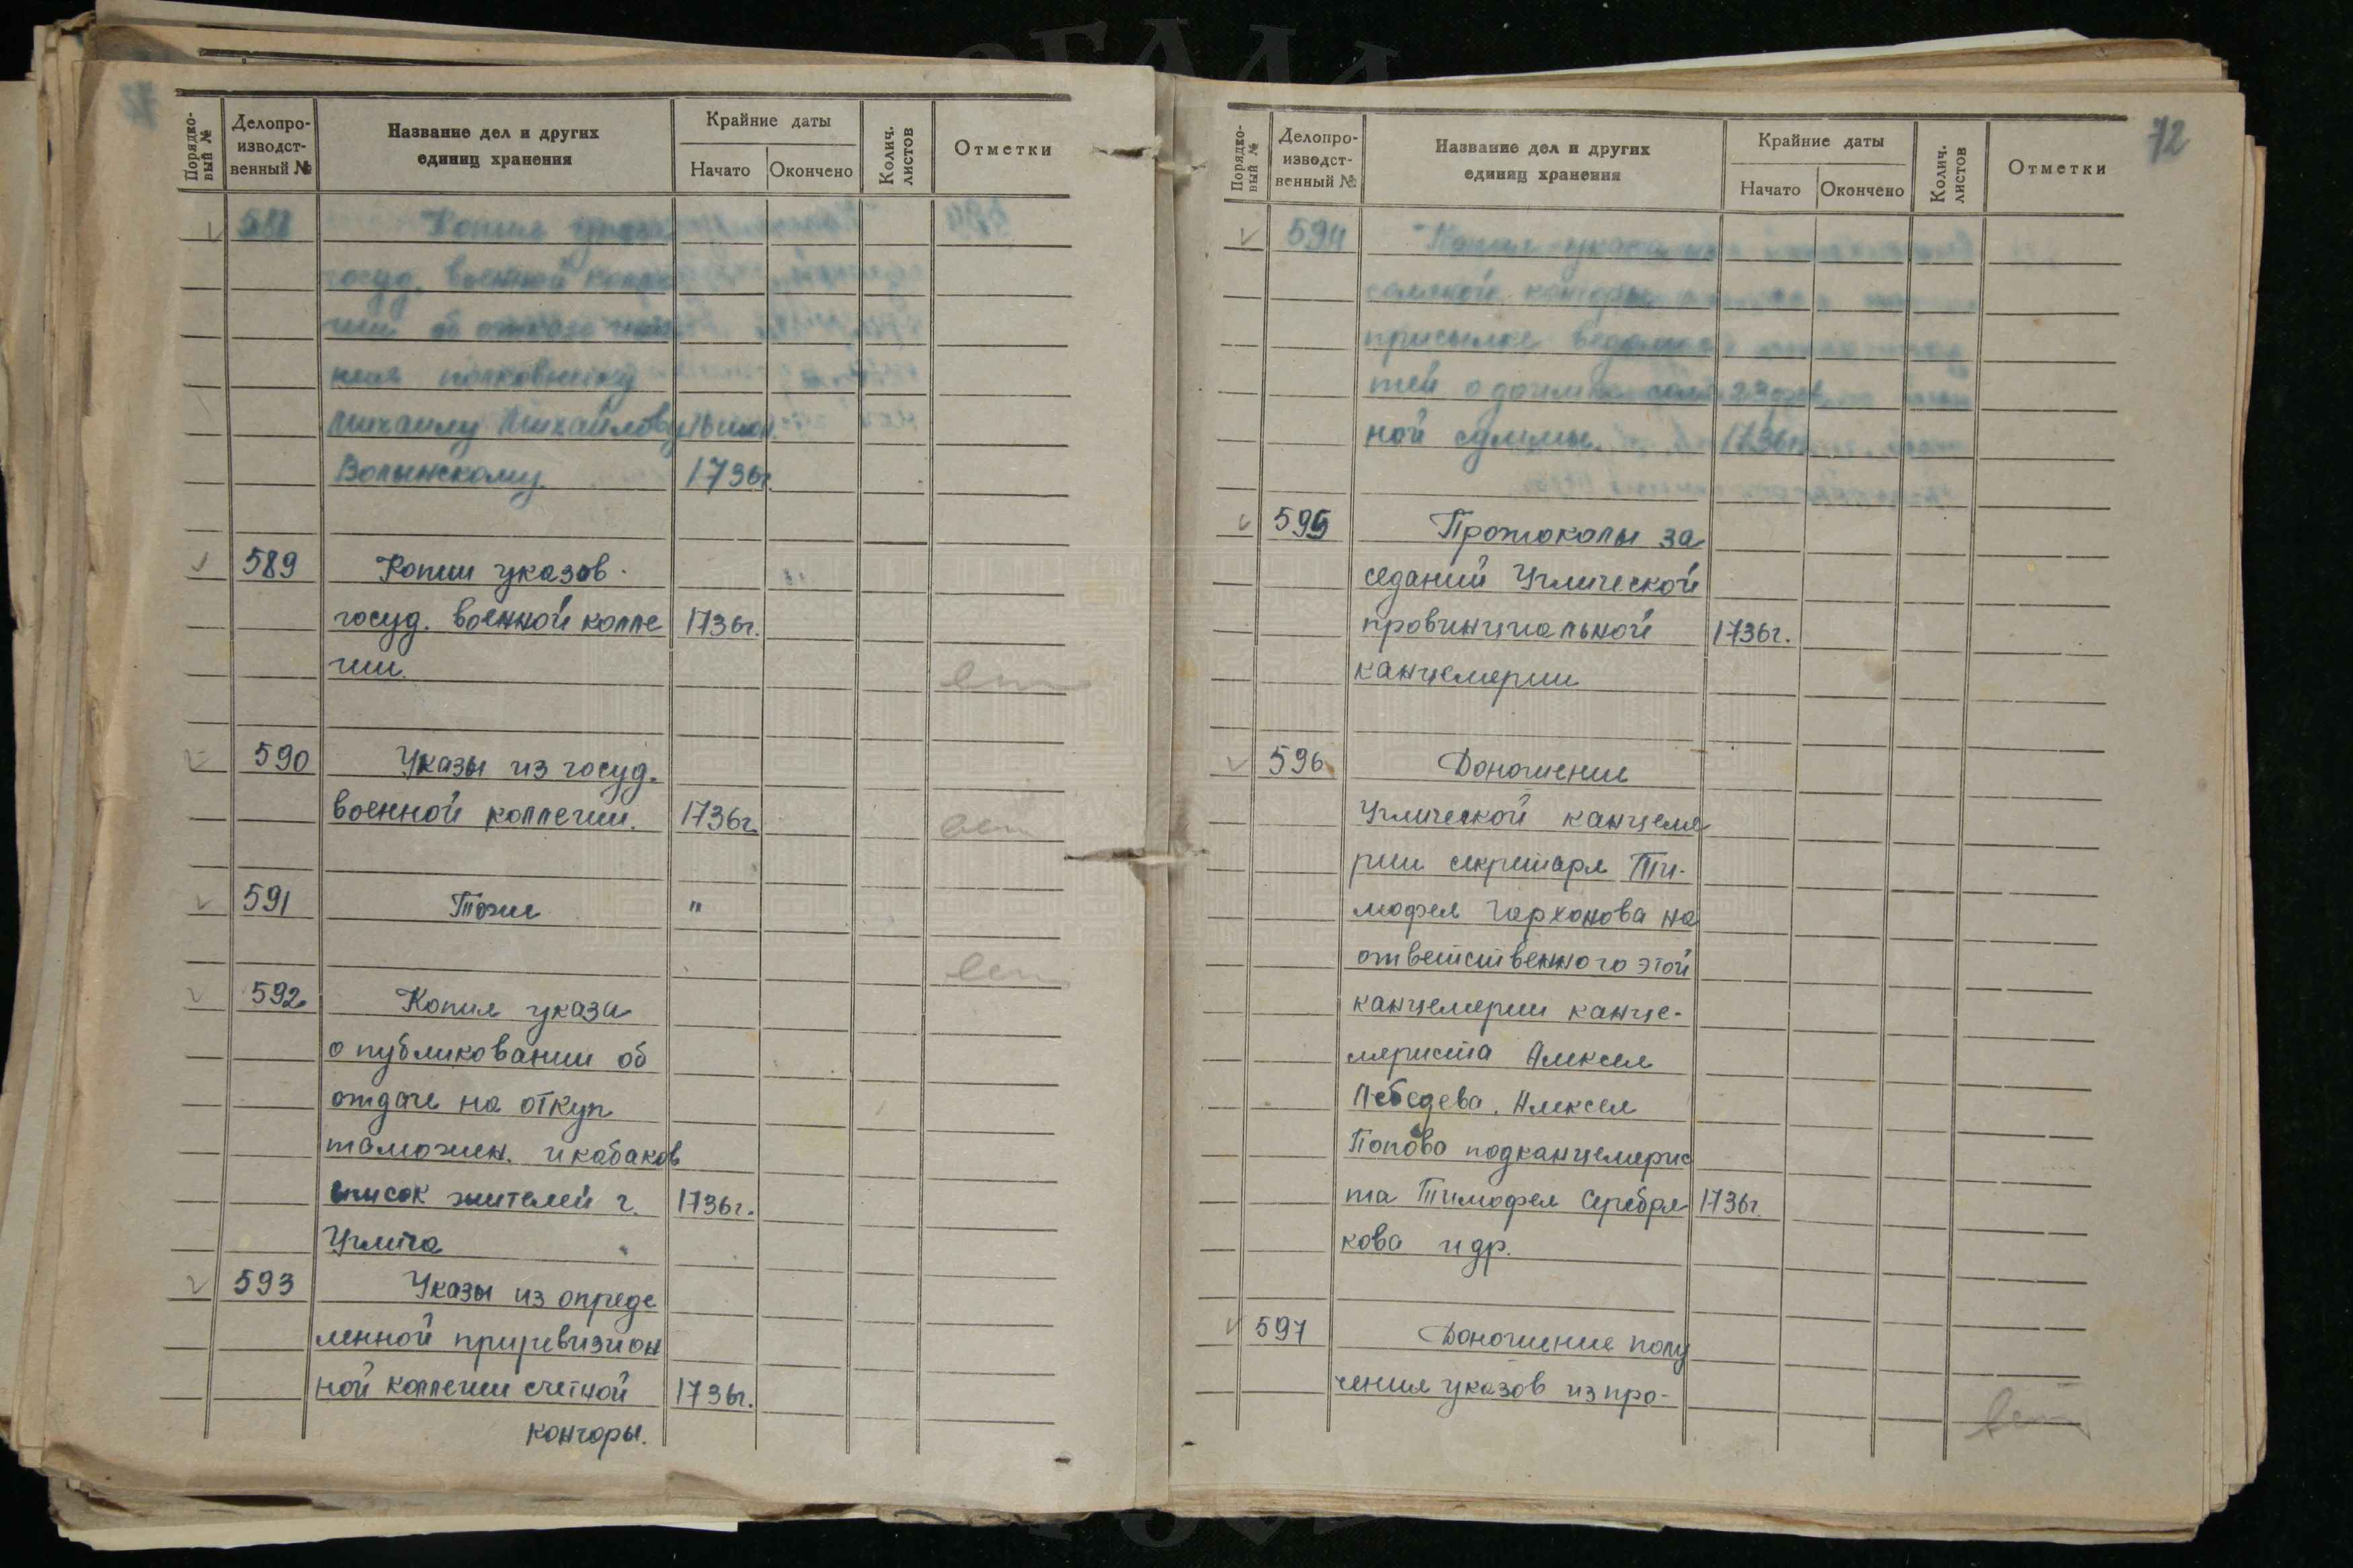 Порядко-
вый №
Делопро-
изводст-
венный №
Название дел и других
единиц хранения
Крайние даты
Начато
Окончено
Колич.
листов
Отметки
588 Копия указа
госуд. военной колле
гии об отказе
ния полковнику
Михаилу Михайлову
Волынскому. 1736г.
589 Копии указов
госуд. военной колле 1736г.
гии.
590 Указы из госуд.
военной коллегии. 1736г.
591 Тоже "
592 Копия указа
о публиковании об
отдаче на откуп
таможен. и кабаков
список жителей г. 1736г.
Углича
593 Указы из опреде
ленной приревизион
ной коллегии счетной 1736г.
конторы.
72
Порядко-
вый №
Делопро-
изводст-
венный №
Название дел и других
единиц хранения
Крайние даты
Начато
Окончено
Колич.
листов
Отметки
594 Копия указа из
соляной конторы о
присылке ведомос
тей о доимке
ной суммы. 1736г.
595 Протоколы за
седаний Углической
провинциальной 1736г.
канцелярии
596 Доношение
Углической канцеля
рии секретаря Ти-
мофея Чархонова на
ответственного этой
канцелярии канце-
ляриста Алексея
Лебедева, Алексея
Попова подканцелярис
та Тимофея Серебря 1736г.
кова и др.
597 Доношение полу
чения указов из про-